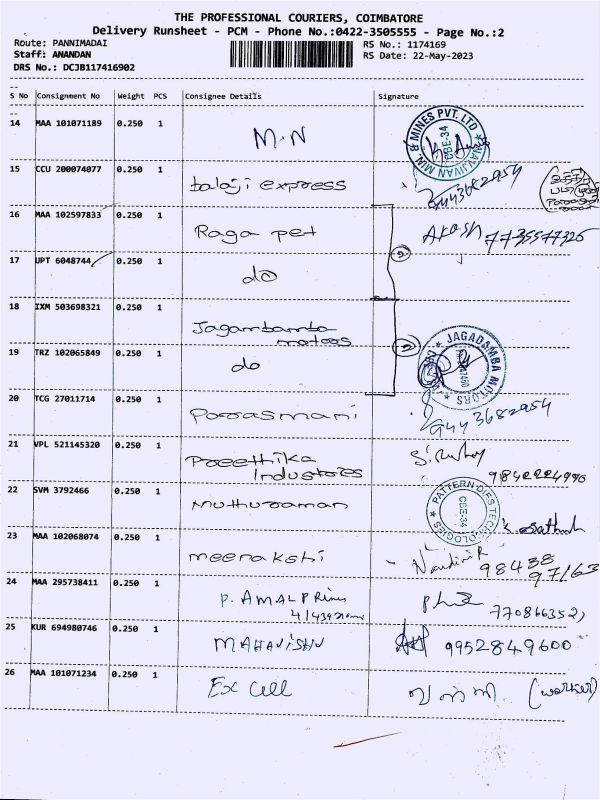 THE PROFESSIONAL COURIERS, COIMBATORE
Delivery Runsheet - PCM - Phone No.:0422-3505555 - Page No.:2
Route: PANNIMADAI RS No.: 1174169
Staff: ANANDAN RS Date: 22-May-2023
DRS No.: DCJB117416902
S No Consignment No Weight PCS Consignee Details Signature
14 MAA 101071189 0.250 1 M.N NAVJIVAN MIN. & MINES PVT. LTD CBE-34
15 CCU 200074077 0.250 1 balaji express
16 MAA 102597833 0.250 1 Raga pet Akash 7735577325
17 UPT 6048744 0.250 1 do
18 IXM 503698321 0.250 1 Jagambamba
motors
19 TRZ 102065849 0.250 1 do JAGADAMBA MOTORS
20 TCG 27011714 0.250 1 Parasmani 9443682954
21 VPL 521145320 0.250 1 Preethika
Industries
22 SVM 3792466 0.250 1 Muthuraman CBE-34
23 MAA 102068074 0.250 1 meenakshi Nandini R 98438
97163
24 MAA 295738411 0.250 1 P. AMALPRINU
25 KUR 694980746 0.250 1 MAHAVISHNU 9952849600
26 MAA 101071234 0.250 1 Ex Cell (worker)